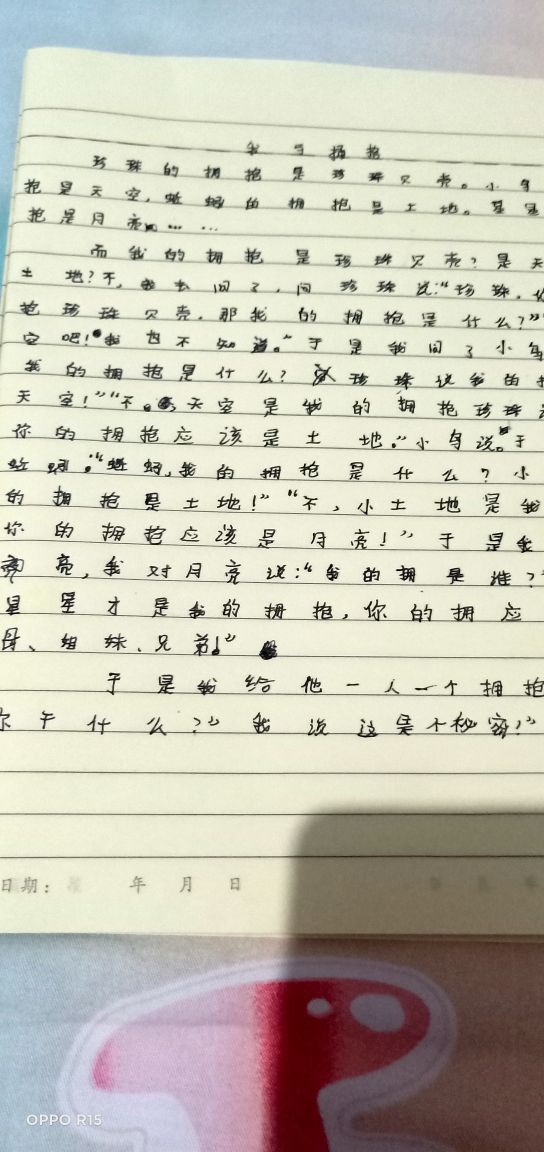 我与拥抱
珍珠的拥抱是珍珠贝壳。小鸟
抱是天空，蚯蚓的拥抱是土地。星星
抱是月亮……
而我的拥抱是珍珠贝壳？是天
土地？不，我去问了，问珍珠说：“珍珠，你
抱珍珠贝壳，那我的拥抱是什么？”“
空吧！我也不知道。”于是我问了小鸟
我的拥抱是什么？珍珠说我的拥
天空！”“不，天空是我的拥抱珍珠
你的拥抱应该是土地。”小鸟说。于
蚯蚓。“蚯蚓，我的拥抱是什么？小
的拥抱是土地！”“不，小土地是我
你的拥抱应该是月亮！”于是我
亮，我对月亮说：“我的拥是谁？”
星星才是我的拥抱，你的拥应
母、姐妹、兄弟！”
于是我给他一人一个拥抱
你干什么？”我说这是个秘密！”
日期： 年 月 日
OPPO R15